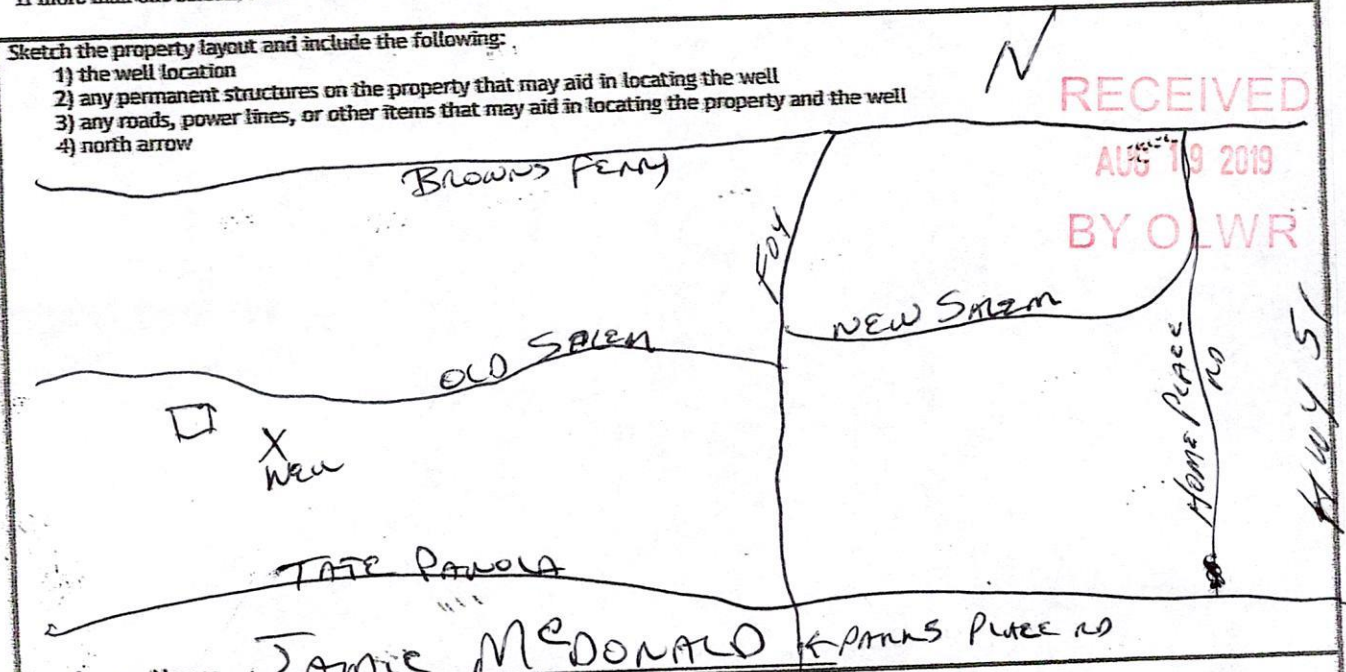 Sketch the property layout and include the following:
1) the well location
2) any permanent structures on the property that may aid in locating the well
3) any roads, power lines, or other items that may aid in locating the property and the well
4) north arrow
N
RECEIVED
AUG 19 2019
BY OLWR
BROWNS FERRY
FOY
NEW SALEM
OLD SALEM
HOME PLACE
RD
HWY 51
X
Well
TATE PANOLA
JAMIE McDONALD
PARKS PLACE RD